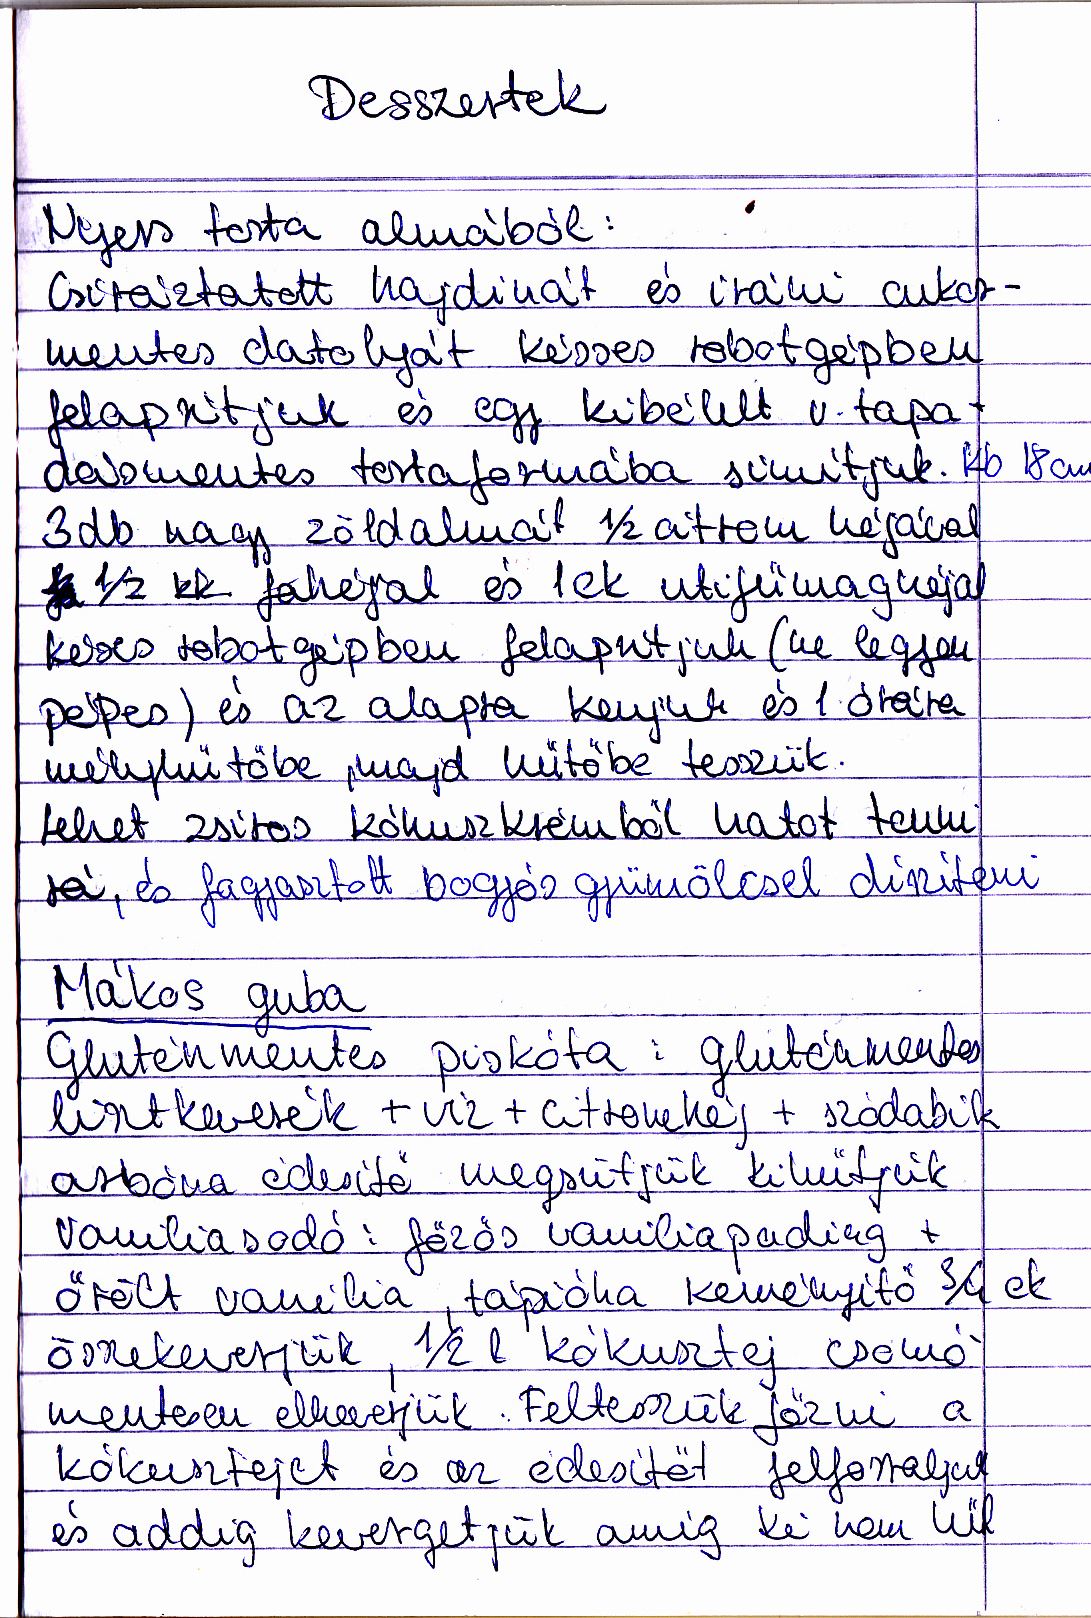 Desszertek
Nyers torta almából:
Csiráztatott hajdinát és iráni cukor-
mentes datolyát késses robotgépben
felaprítjuk és egy kibélelt v. tapa-
dásmentes tortaformába simítjuk. Kb 18cm
3db nagy zöldalmát 1/2 citrom héjával
1/2 kk fahéjjal és 1ek utifűmaghéjjal
késes robotgépben felaprítjuk (ne legyen
pépes) és az alapra kenjük és 1 órára
mélyhűtőbe, majd hűtőbe tesszük.
Lehet zsíros kókuszkrémből habot tenni
rá, és fagyasztott bogyós gyümölcsel díszíteni
Mákos guba
Gluténmentes piskóta: gluténmentes
lisztkeverék + víz + citromhéj + szódabik
arbóna édesítő megsütjük kihűtjük
Vaníliasodó: főzős vaníliapuding +
őrölt vanília, tápióka keményítő 3/4 ek
összekeverjük, 1/2 l kókusztej csomó
mentesen elkeverjük. Feltesszük főzni a
kókusztejet és az édesítőt felforraljuk
és addig kevergetjük amíg ki nem hűl